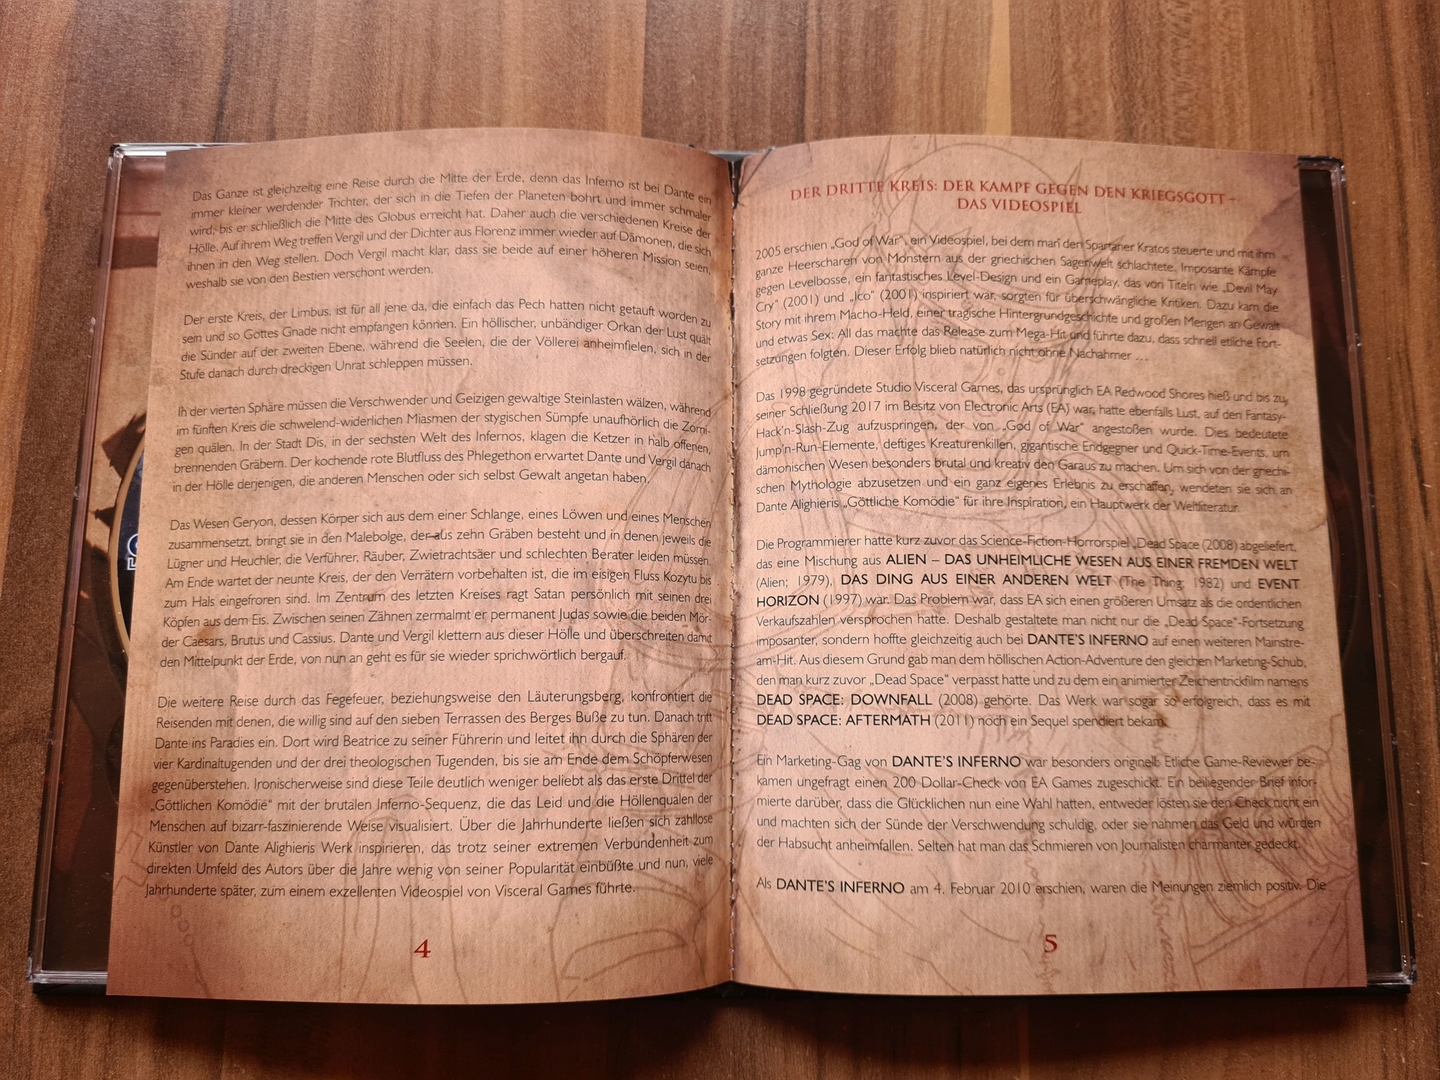 Das Ganze ist gleichzeitig eine Reise durch die Mitte der Erde, denn das Inferno ist bei Dante ein
immer kleiner werdender Trichter, der sich in die Tiefen der Planeten bohrt und immer schmaler
wird, bis er schließlich die Mitte des Globus erreicht hat. Daher auch die verschiedenen Kreise der
Hölle. Auf ihrem Weg treffen Vergil und der Dichter aus Florenz immer wieder auf Dämonen, die sich
ihnen in den Weg stellen. Doch Vergil macht klar, dass sie beide auf einer höheren Mission seien,
weshalb sie von den Bestien verschont werden.
Der erste Kreis, der Limbus, ist für all jene da, die einfach das Pech hatten nicht getauft worden zu
sem und so Gottes Gnade nicht empfangen können. Ein höllischer, unbändiger Orkan der Lust quält
die Sünder auf der zweiten Ebene, während die Seelen, die der Völlerei anheimfielen, sich in der
Stufe danach durch dreckigen Unrat schleppen müssen.
Ih der vierten Sphäre müssen die Verschwender und Geizigen gewaltige Steinlasten wälzen, während
im fünften Kreis die schwelend-widerlichen Miasmen der stygischen Sümpfe unaufhörlich die Zorni-
gen quälen. In der Stadt Dis, in der sechsten Welt des Infernos, klagen die Ketzer in halb offenen,
brennenden Gräbern. Der kochende rote Blutfluss des Phlegethon erwartet Dante und Vergil danach
in der Hölle derjenigen, die anderen Menschen oder sich selbst Gewalt angetan haben.
Das Wesen Geryon, dessen Körper sich aus dem einer Schlange, eines Löwen und eines Menschen
zusammensetzt, bringt sie in den Malebolge, der aus zehn Gräben besteht und in denen jeweils die
Lügner und Heuchler, die Verführer, Räuber, Zwietrachtsäer und schlechten Berater leiden müssen.
Am Ende wartet der neunte Kreis, der den Verrätern vorbehalten ist, die im eisigen Fluss Kozytu bis
zum Hals eingefroren sind. Im Zentrum des letzten Kreises ragt Satan persönlich mit seinen drei
Köpfen aus dem Eis. Zwischen seinen Zähnen zermalmt er permanent Judas sowie die beiden Mör-
der Caesars, Brutus und Cassius. Dante und Vergil klettern aus dieser Hölle und überschreiten damit
den Mittelpunkt der Erde, von nun an geht es für sie wieder sprichwörtlich bergauf.
Die weitere Reise durch das Fegefeuer, beziehungsweise den Läuterungsberg, konfrontiert die
Reisenden mit denen, die willig sind auf den sieben Terrassen des Berges Buße zu tun. Danach tritt
Dante ins Paradies ein. Dort wird Beatrice zu seiner Führerin und leitet ihn durch die Sphären der
vier Kardinaltugenden und der drei theologischen Tugenden, bis sie am Ende dem Schöpferwesen
gegenüberstehen. Ironischerweise sind diese Teile deutlich weniger beliebt als das erste Drittel der
„Göttlichen Komödie“ mit der brutalen Inferno-Sequenz, die das Leid und die Höllenqualen der
Menschen auf bizarr-faszinierende Weise visualisiert. Über die Jahrhunderte ließen sich zahllose
Künstler von Dante Alighieris Werk inspirieren, das trotz seiner extremen Verbundenheit zum
direkten Umfeld des Autors über die Jahre wenig von seiner Popularität einbüßte und nun, viele
Jahrhunderte später, zum einem exzellenten Videospiel von Visceral Games führte.
4
DER DRITTE KREIS: DER KAMPF GEGEN DEN KRIEGSGOTT –
DAS VIDEOSPIEL
2005 erschien „God of War“, ein Videospiel, bei dem man den Spartaner Kratos steuerte und mit ihm
ganze Heerscharen von Monstern aus der griechischen Sagenwelt schlachtete. Imposante Kämpfe
gegen Levelbosse, ein fantastisches Level-Design und ein Gameplay, das von Titeln wie „Devil May
Cry“ (2001) und „Ico“ (2001) inspiriert war, sorgten für überschwängliche Kritiken. Dazu kam die
Story mit ihrem Macho-Held, einer tragische Hintergrundgeschichte und großen Mengen an Gewalt
und etwas Sex: All das machte das Release zum Mega-Hit und führte dazu, dass schnell etliche Fort-
setzungen folgten. Dieser Erfolg blieb natürlich nicht ohne Nachahmer …
Das 1998 gegründete Studio Visceral Games, das ursprünglich EA Redwood Shores hieß und bis zu
seiner Schließung 2017 im Besitz von Electronic Arts (EA) war, hatte ebenfalls Lust, auf den Fantasy-
Hack'n-Slash-Zug aufzuspringen, der von „God of War“ angestoßen wurde. Dies bedeutete
Jump'n-Run-Elemente, deftiges Kreaturenkillen, gigantische Endgegner und Quick-Time-Events, um
dämonischen Wesen besonders brutal und kreativ den Garaus zu machen. Um sich von der griechi-
schen Mythologie abzusetzen und ein ganz eigenes Erlebnis zu erschaffen, wendeten sie sich an
Dante Alighieris „Göttliche Komödie“ für ihre Inspiration, ein Hauptwerk der Weltliteratur.
Die Programmierer hatte kurz zuvor das Science-Fiction-Horrorspiel „Dead Space (2008) abgeliefert,
das eine Mischung aus ALIEN – DAS UNHEIMLICHE WESEN AUS EINER FREMDEN WELT
(Alien; 1979), DAS DING AUS EINER ANDEREN WELT (The Thing; 1982) und EVENT
HORIZON (1997) war. Das Problem war, dass EA sich einen größeren Umsatz als die ordentlichen
Verkaufszahlen versprochen hatte. Deshalb gestaltete man nicht nur die „Dead Space“-Fortsetzung
imposanter, sondern hoffte gleichzeitig auch bei DANTE'S INFERNO auf einen weiteren Mainstre-
am-Hit. Aus diesem Grund gab man dem höllischen Action-Adventure den gleichen Marketing-Schub,
den man kurz zuvor „Dead Space“ verpasst hatte und zu dem ein animierter Zeichentrickfilm namens
DEAD SPACE: DOWNFALL (2008) gehörte. Das Werk war sogar so erfolgreich, dass es mit
DEAD SPACE: AFTERMATH (2011) noch ein Sequel spendiert bekam.
Ein Marketing-Gag von DANTE'S INFERNO war besonders originell: Etliche Game-Reviewer be-
kamen ungefragt einen 200 Dollar-Check von EA Games zugeschickt. Ein beiliegender Brief infor-
mierte darüber, dass die Glücklichen nun eine Wahl hatten, entweder lösten sie den Check nicht ein
und machten sich der Sünde der Verschwendung schuldig, oder sie nahmen das Geld und würden
der Habsucht anheimfallen. Selten hat man das Schmieren von Journalisten charmanter gedeckt.
Als DANTE'S INFERNO am 4. Februar 2010 erschien, waren die Meinungen ziemlich positiv. Die
5